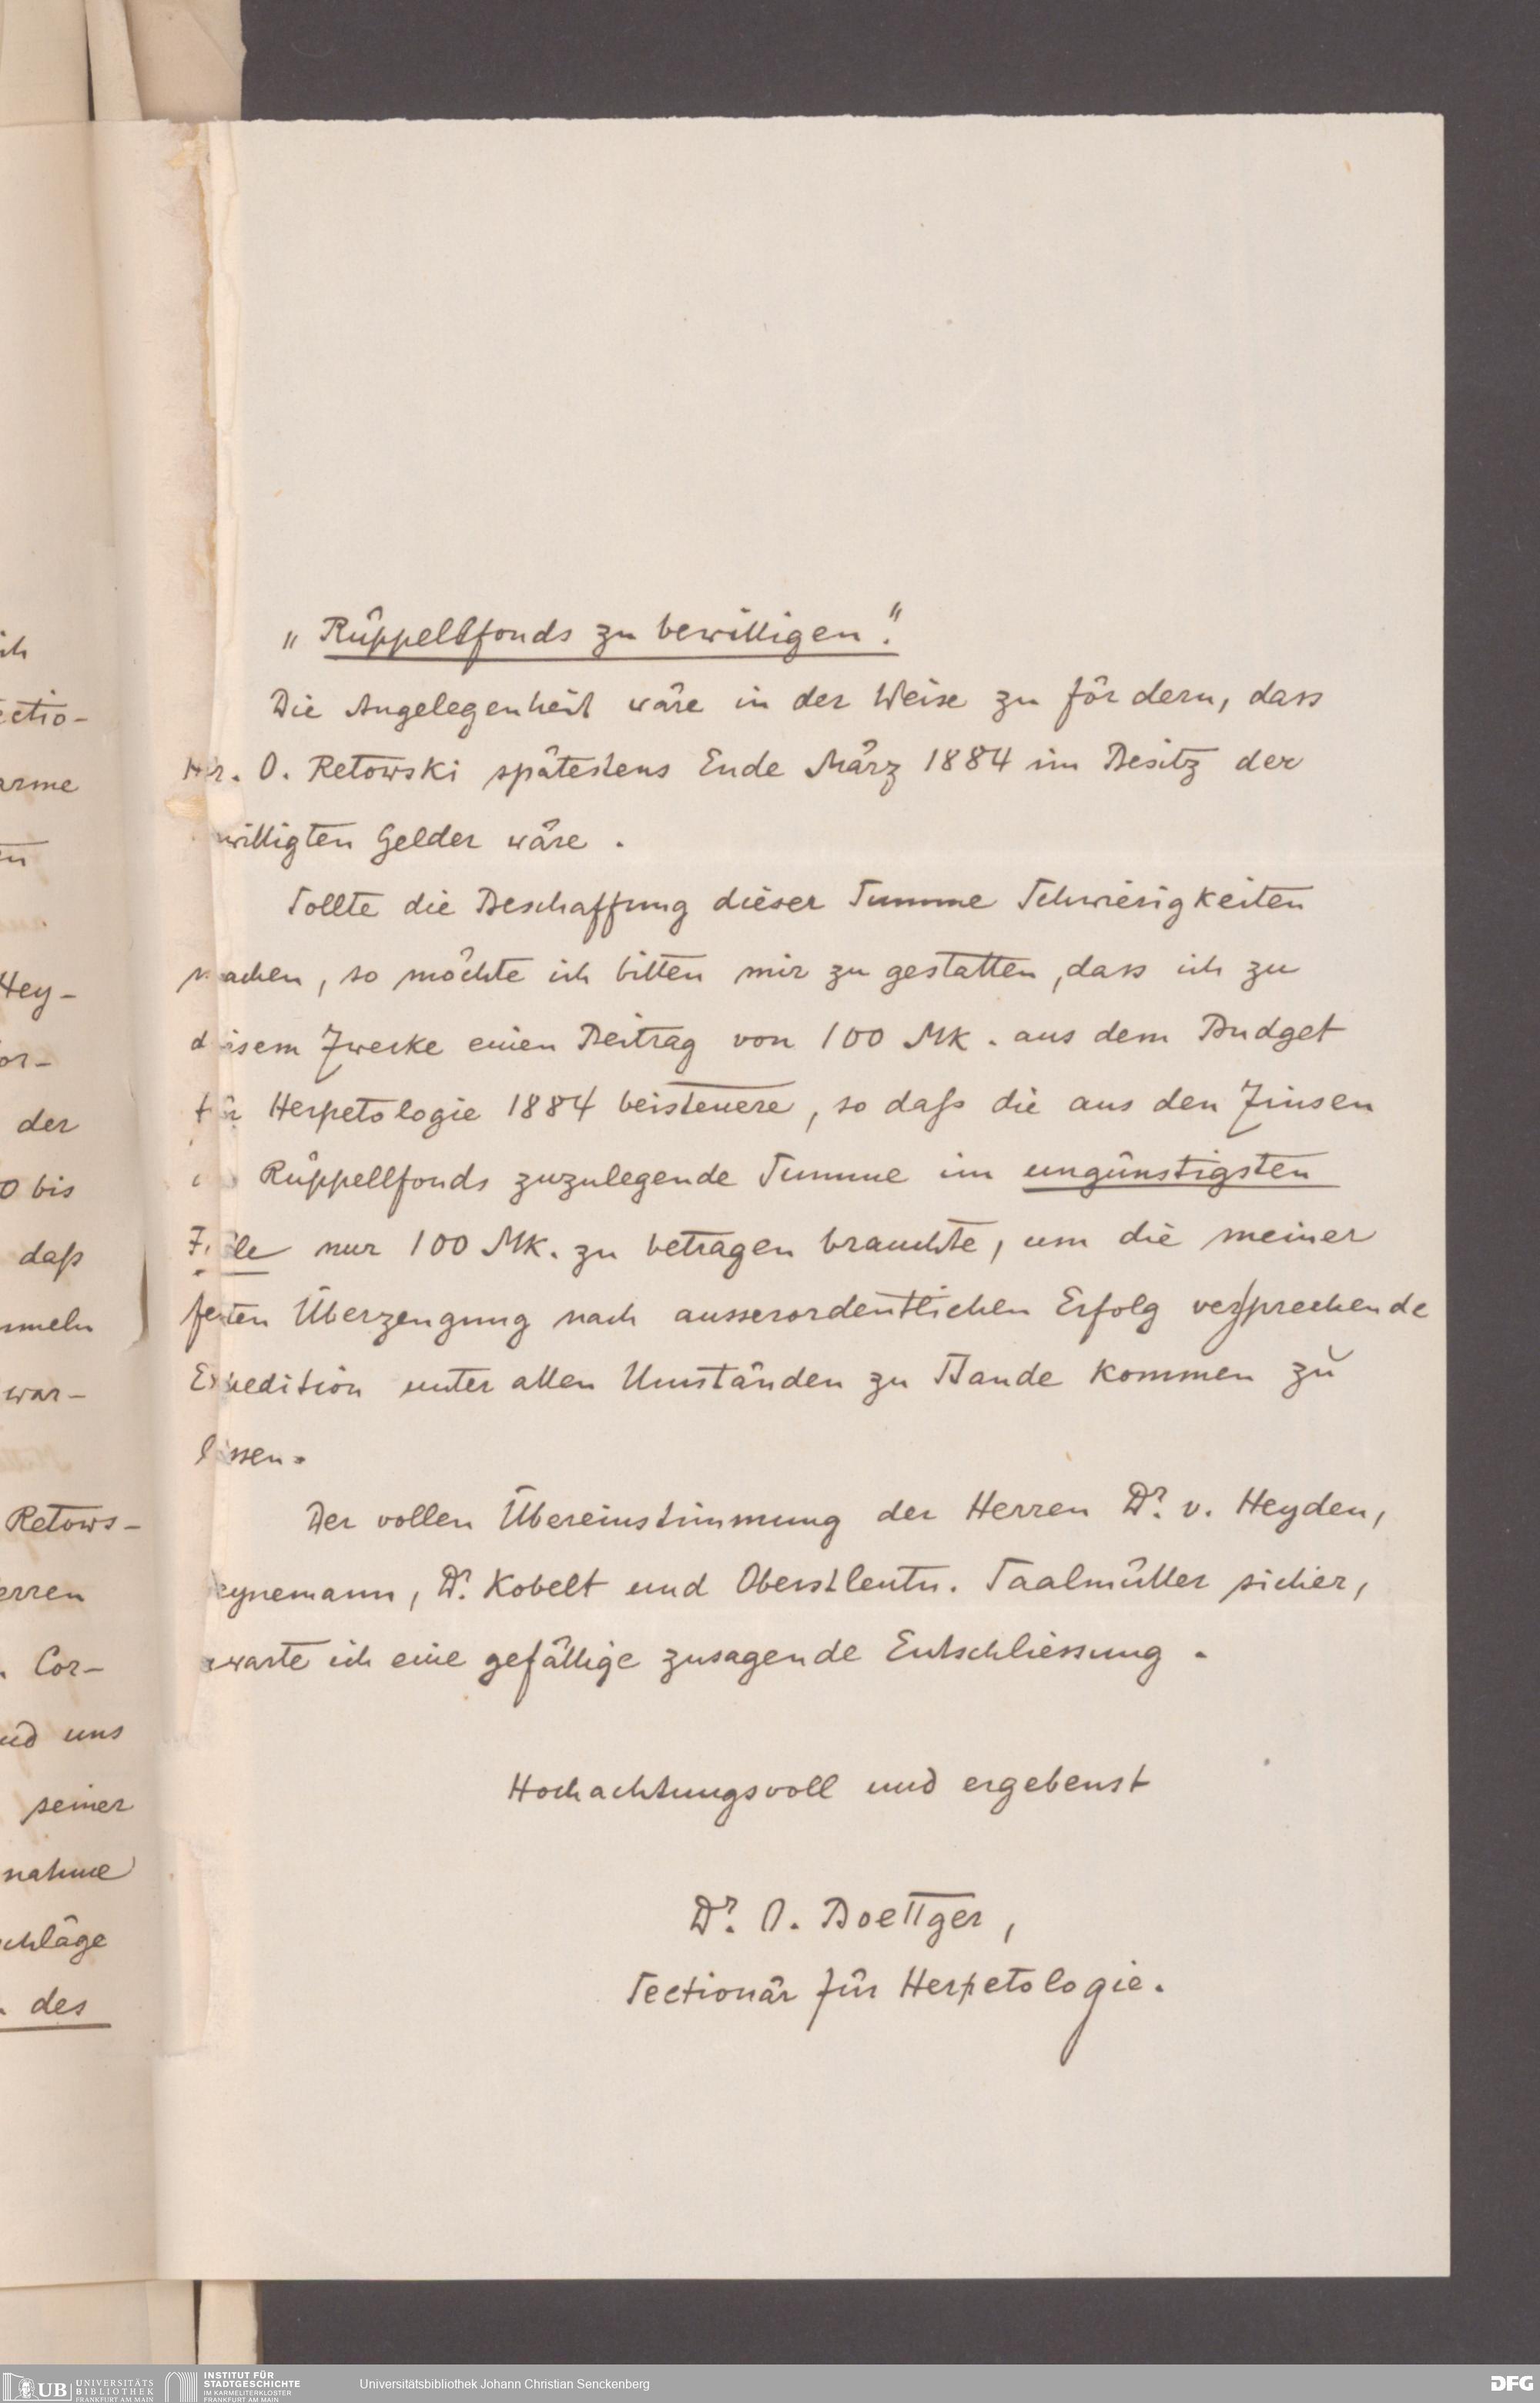 „Rüppellfonds zu bewilligen."
Die Angelegenheit wäre in der Weise zu fördern, dass
Hr. O. Retowski spätestens Ende März 1884 im Besitz der
willigten Gelder wäre.
Sollte die Beschaffung dieser Summe Schwierigkeiten
machen, so möchte ich bitten mir zu gestatten, dass ich zu
diesem Zwecke einen Beitrag von 100 Mk. aus dem Budget
für Herpetologie 1884 beisteuere, so daß die aus den Zinsen
Rüppellfonds zuzulegende Summe im ungünstigsten
Falle nur 100 Mk. zu betragen brauchte, um die meiner
festen Überzeugung nach ausserordentlichen Erfolg versprechende
Expedition unter allen Umständen zu Stande kommen zu
lassen.
Der vollen Übereinstimmung der Herren Dr. v. Heyden,
eynemann, Dr. Kobelt und Oberstleutn. Saalmüller sicher,
erwarte ich eine gefällige zusagende Entschliessung.
Hochachtungsvoll und ergebenst
Dr. O. Boettger,
Sectionär für Herpetologie.
ich
ectio-
arme
en
Hey-
or-
der
0 bis
daß
mmeln
war-
Retows-
erren
. Cor-
und uns
seiner
nahme
schläge
des
UB UNIVERSITÄTS
BIBLIOTHEK
FRANKFURT AM MAIN
INSTITUT FÜR
STADTGESCHICHTE
IM KARMELITERKLOSTER
FRANKFURT AM MAIN
Universitätsbibliothek Johann Christian Senckenberg
DFG